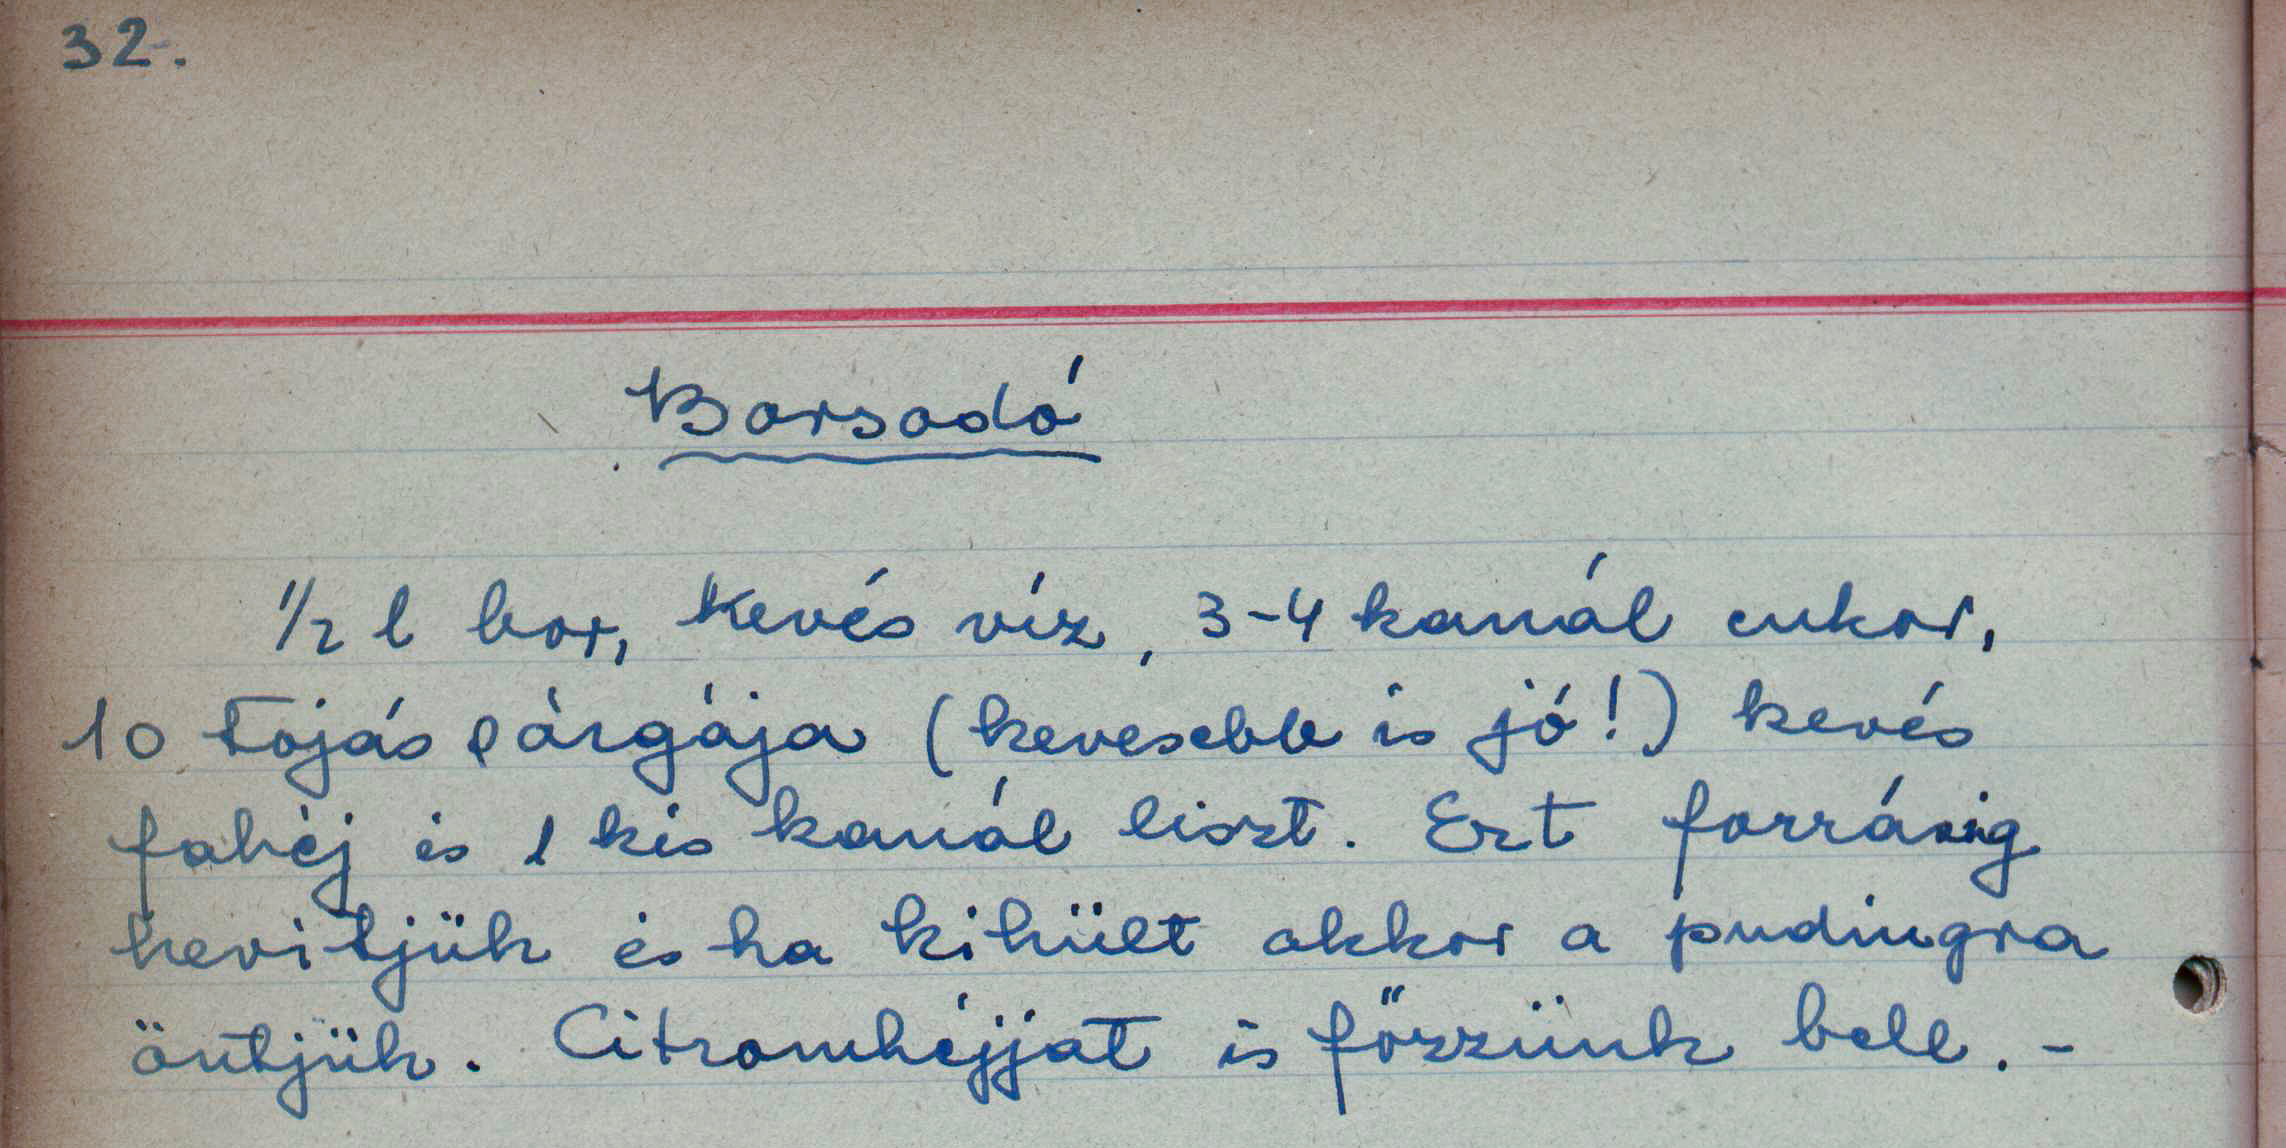 32.
Borsodó
1/2 l bor, kevés víz, 3-4 kanál cukor,
10 tojás sárgája (kevesebb is jó!) kevés
fahéj és 1 kis kanál liszt. Ezt forrásig
hevitjük és ha kihült akkor a pudingra
öntjük. Citromhéjjat is főzzünk bele. -